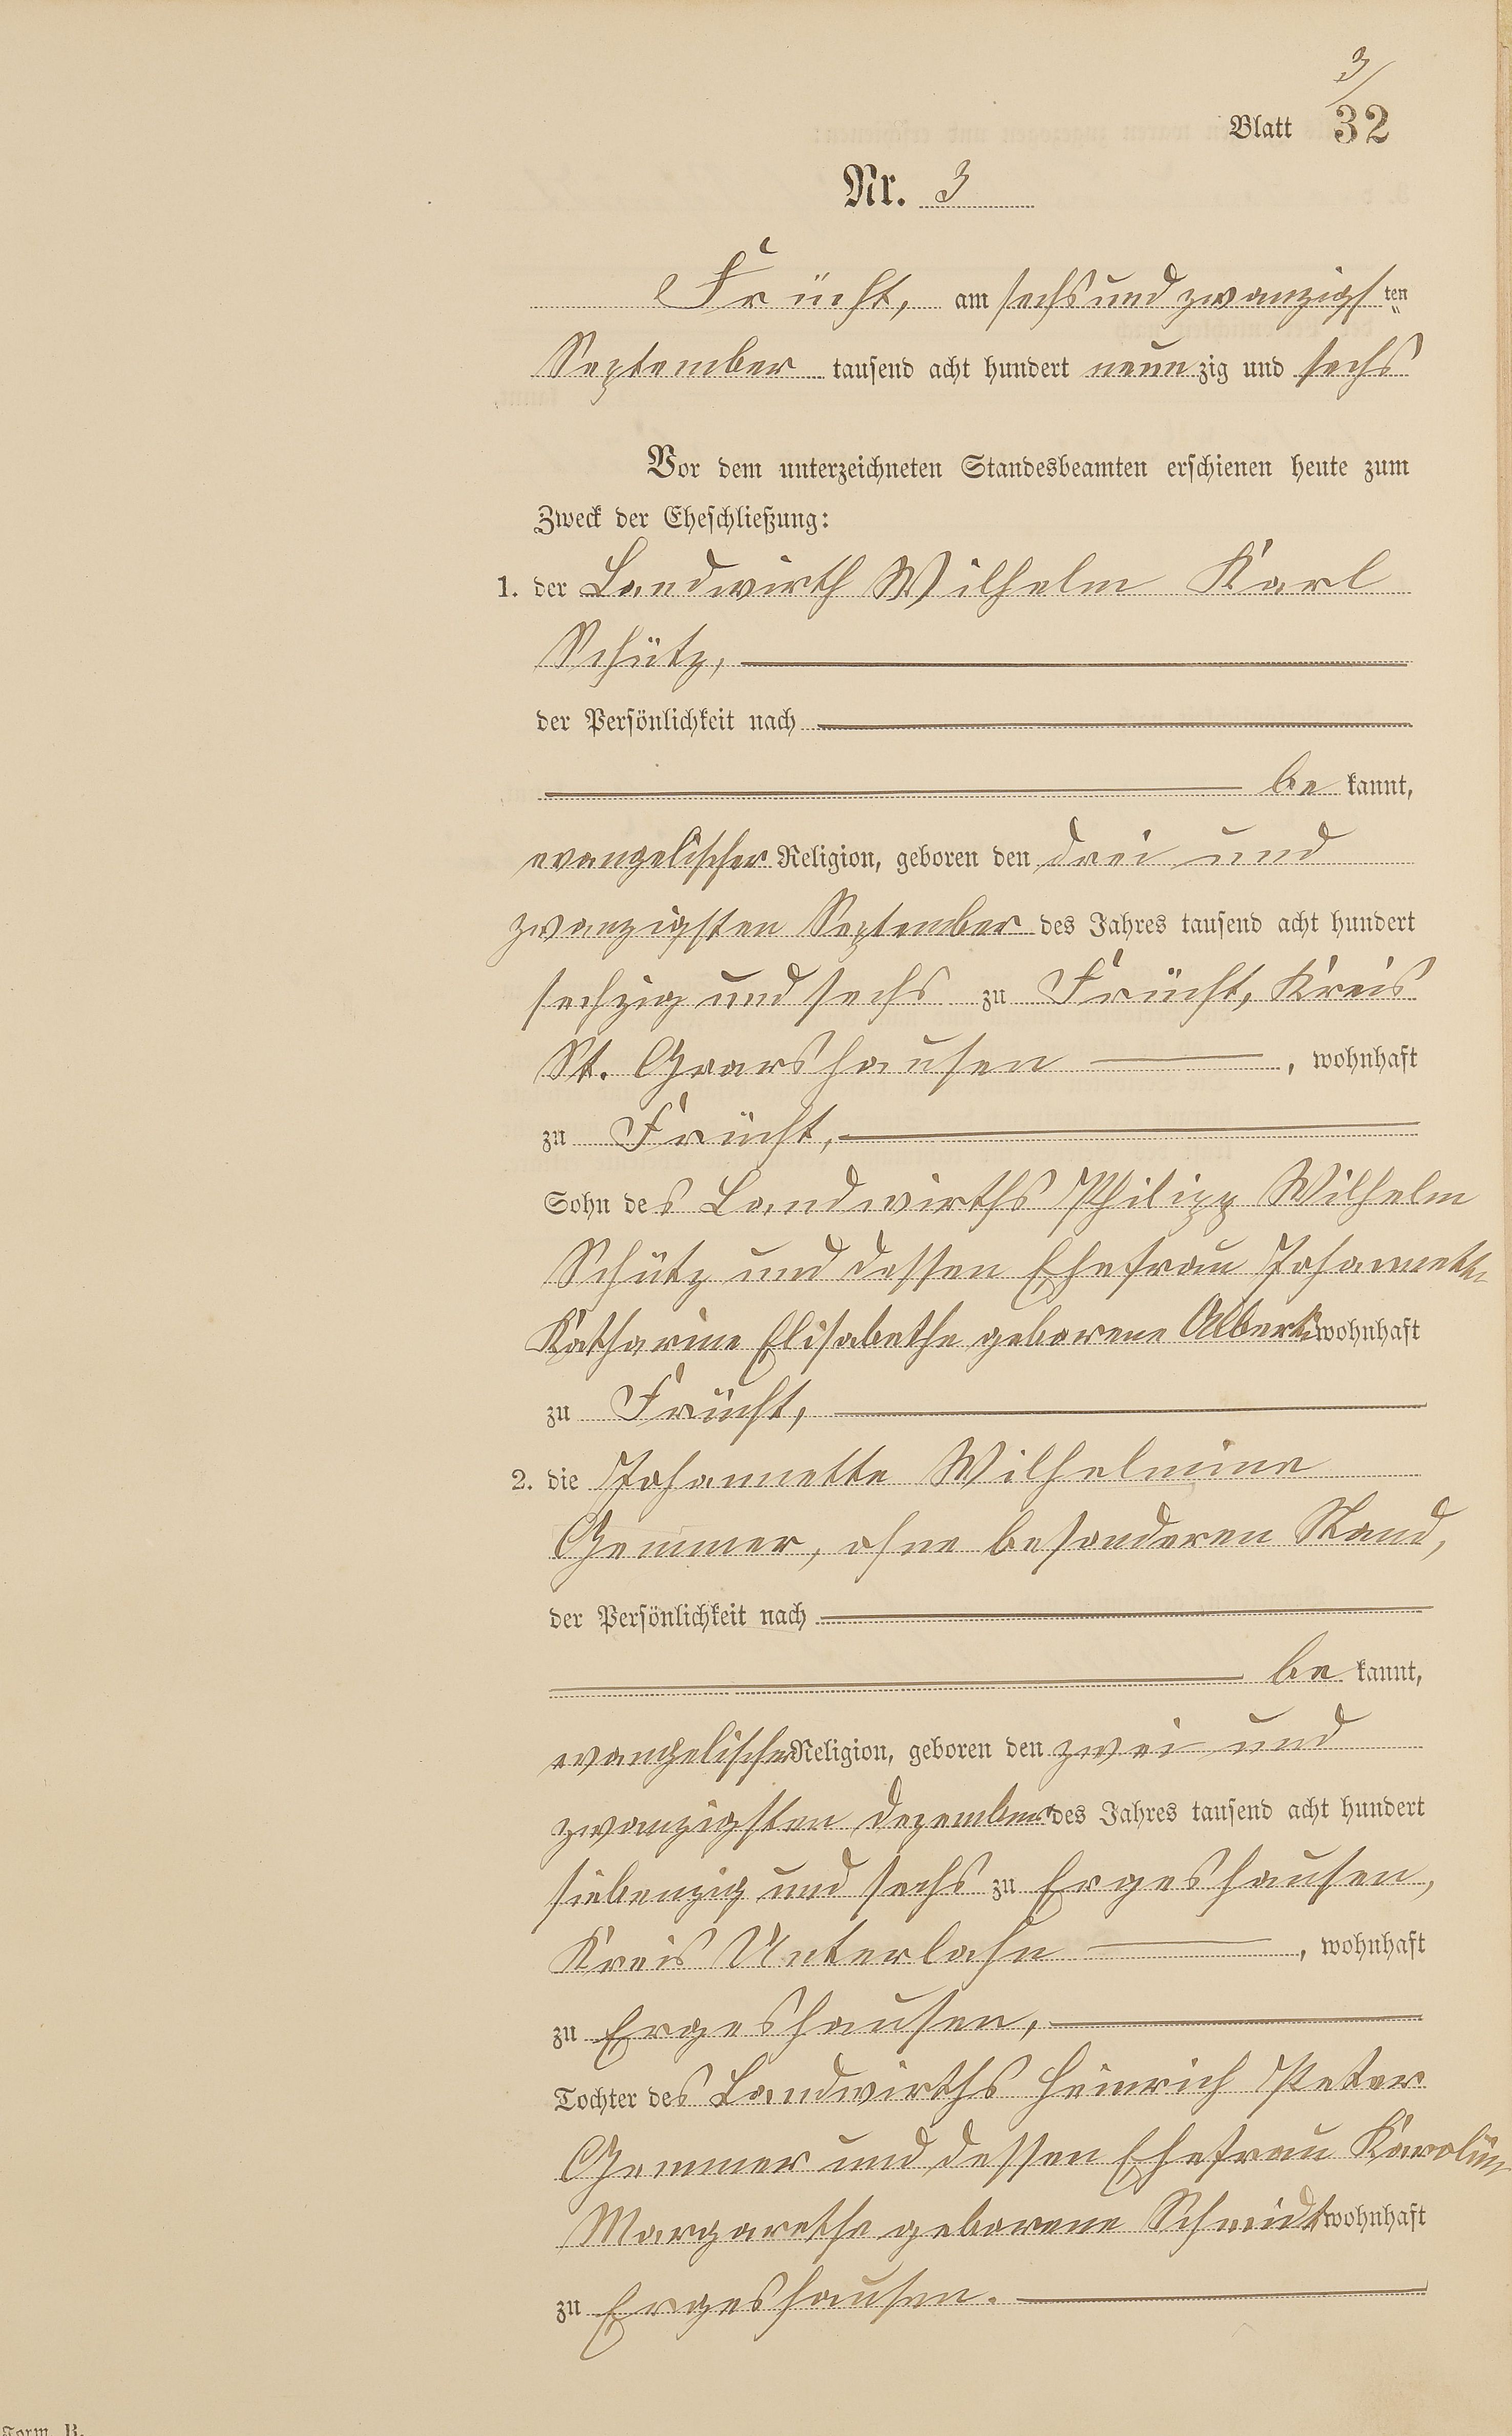 3
Blatt 32
Nr. 3
Frücht, am sechsundzwanzigsten
September tausend acht hundert neunzig und sechs
Vor dem unterzeichneten Standesbeamten erschienen heute zum
Zweck der Eheschließung:
1. der Landwirth Wilhelm Karl
Schütz,
der Persönlichkeit nach
be kannt,
evangelischer Religion, geboren den drei und
zwanzigsten September des Jahres tausend acht hundert
sechzig und sechs zu Frücht, Kreis
St. Goarshausen, wohnhaft
zu Frücht,
Sohn des Landwirths Philipp Wilhelm
Schütz und dessen Ehefrau Johannette
Katharine Elisabethe geborene Alberti wohnhaft
zu Frücht,
2. die Johannette Wilhelmine
Gemmer, ohne besonderen Stand,
der Persönlichkeit nach
be kannt,
evangelischer Religion, geboren den zwei und
zwanzigsten Dezember des Jahres tausend acht hundert
siebenzig und sechs zu Ergeshausen,
Kreis Unterlahn, wohnhaft
zu Ergeshausen,
Tochter des Landwirths Heinrich Peter
Gemmer und dessen Ehefrau Karoline
Margarethe geborene Schmidt wohnhaft
zu Ergeshausen.
Form. B.